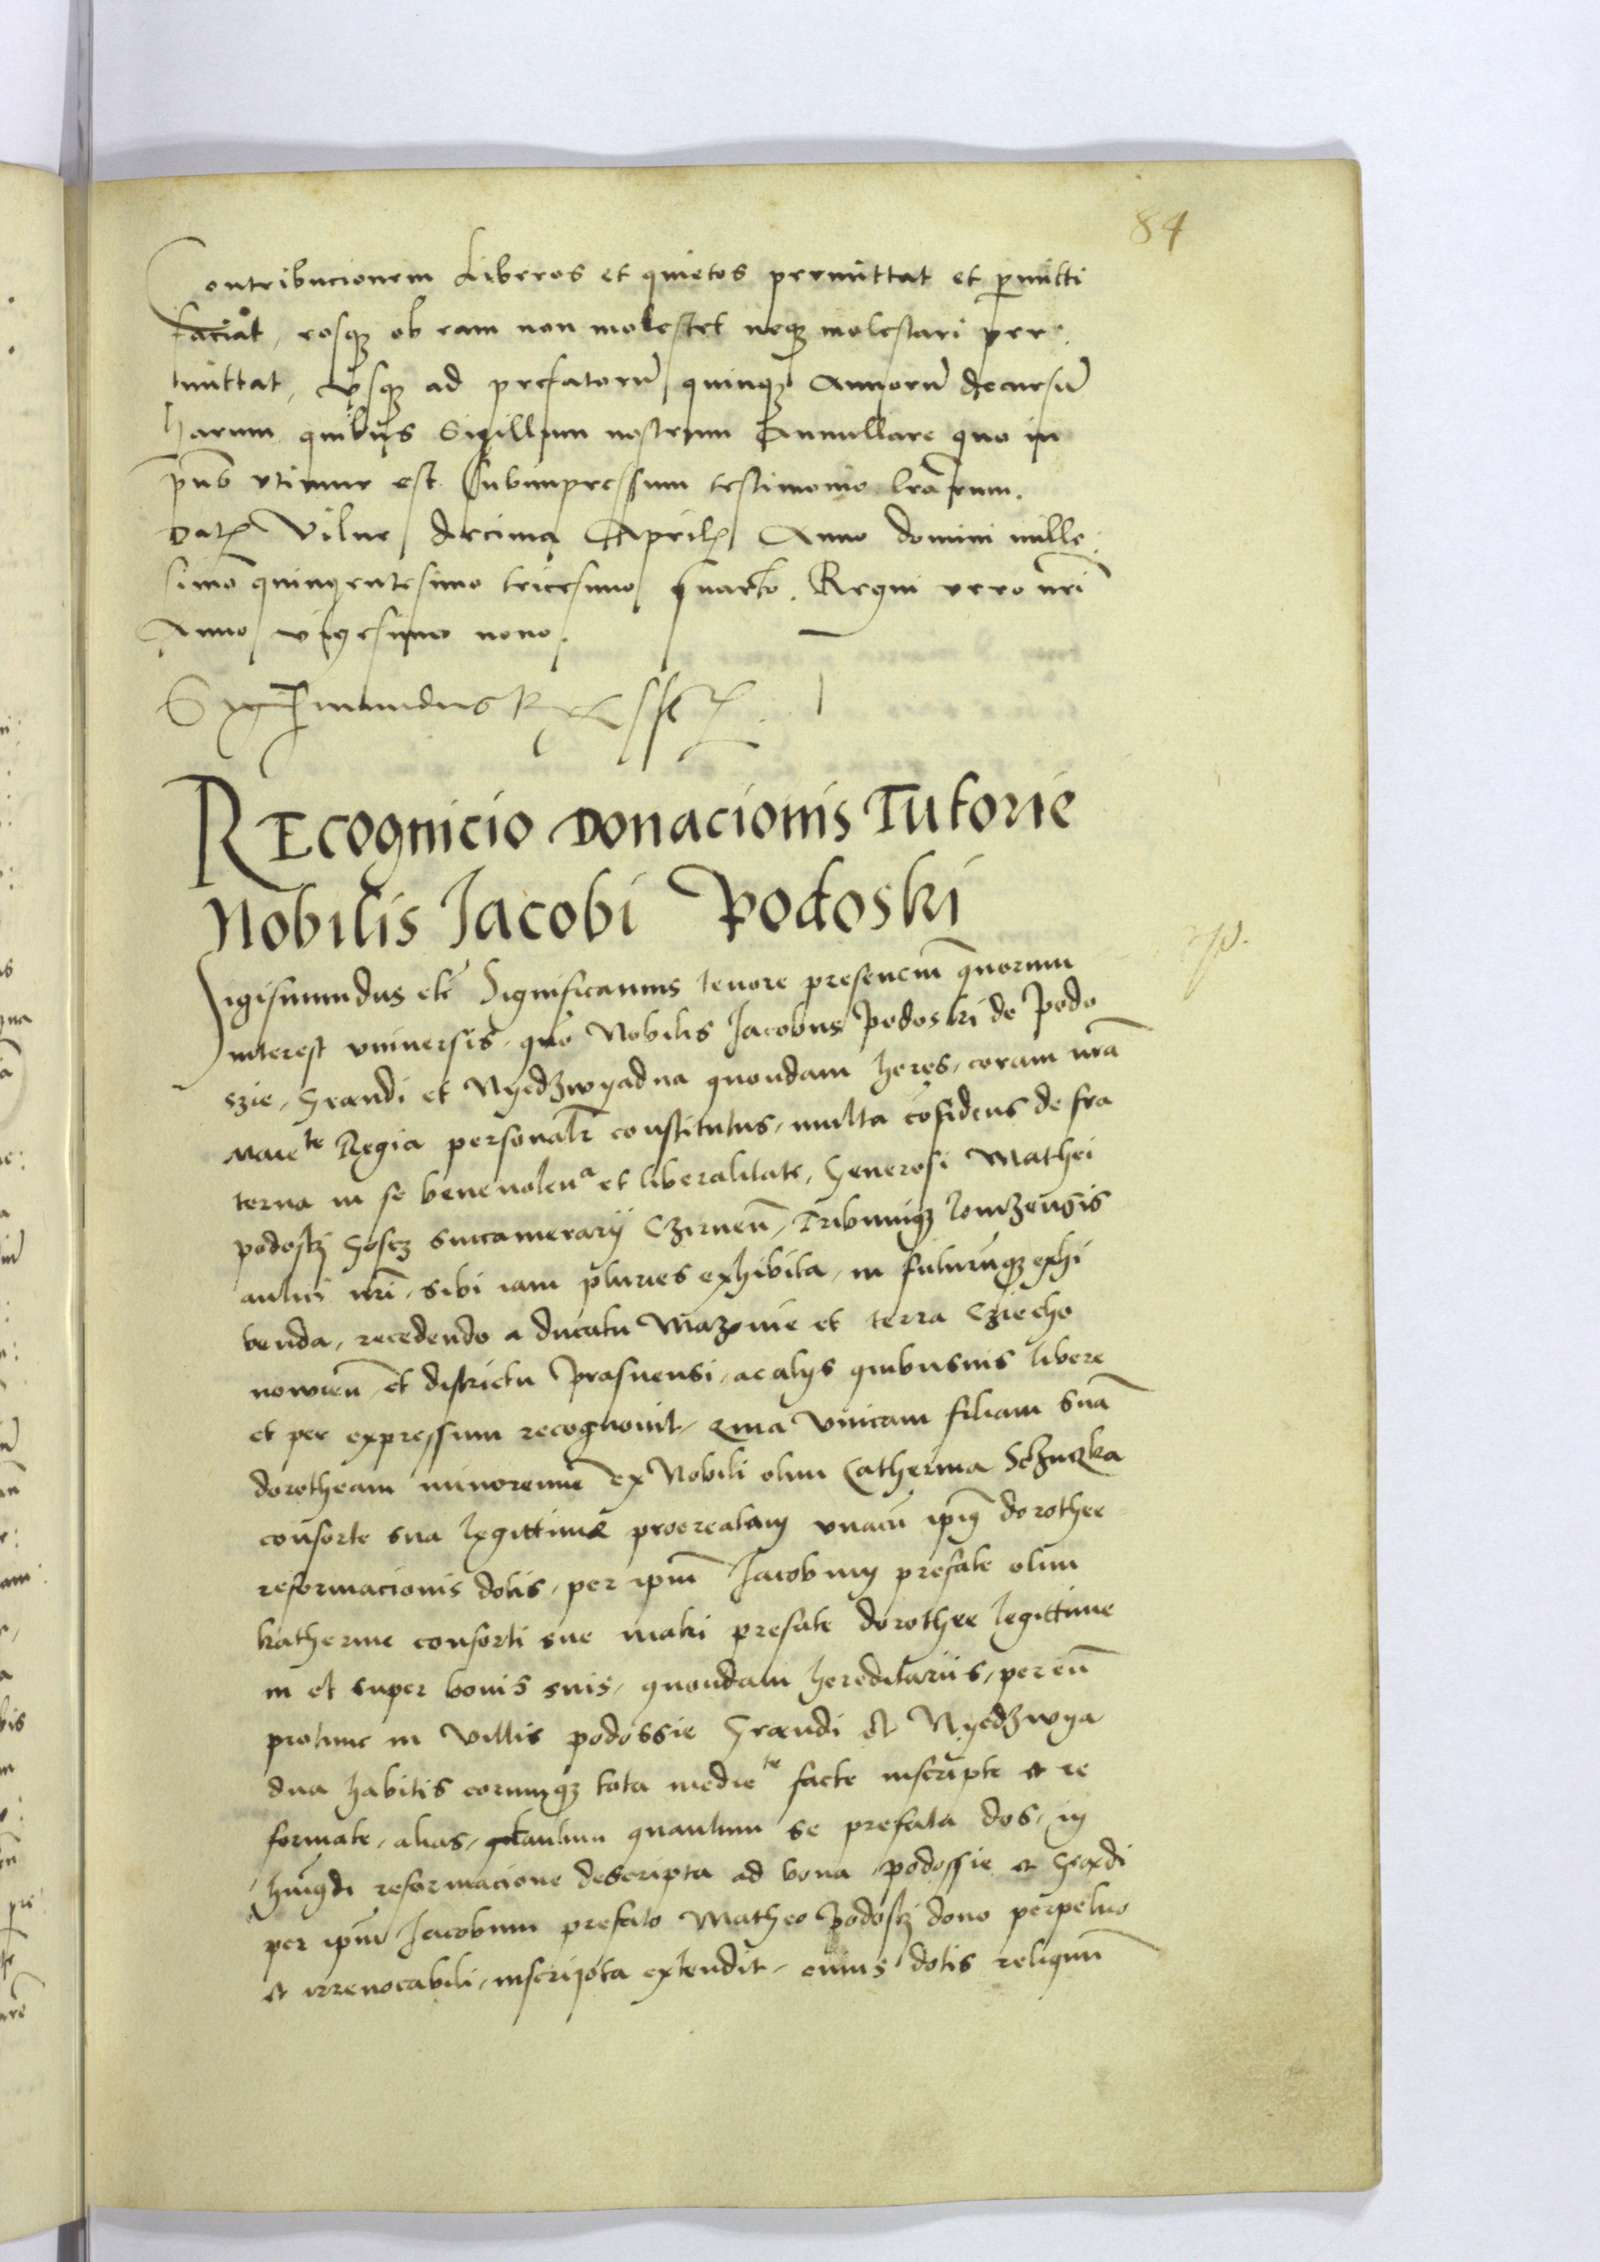 84
Contribucionem Liberos et quietos permittat et p̱mitti
faciat, eosqꝫ ob eam non molestet neqꝫ molestari per
mittat, vsqꝫ ad prefatorū quinqꝫ Annorū decursū
harum quibus Sigillum nostrum Annullare quo in
pn̄tib vtimur est Subimpressum testimonio lr̄arum.
Datꝫ Vilne decima Aprilꝫ Anno domini mille
simo quingentesimo tricesimo quarto. Regni vero nr̄i
Anno vigesimo nono.
Sigismundus R
Recognicio Donacionis Tutorie
Nobilis Jacobi Podoski
Sigismundus etc̄ Significamus tenore presenciū quorum
interest vniuersis. quō Nobilis Jacobus Podoski de Podo
szie, Grandi et Nyedzwyadna quondam heres, coram nr̄a
Maiete Regia personalr̄ constitutus, multa cōfidens de fra
terna in se beneuolena et liberalitate, Generosi Mathei
podoskj succamerarij Czirneñ, Tribuniqꝫ lomzensis
aulici nr̄i, sibi iam pluries exhibita, in futurūqꝫ exhi
benda, recedendo a ducatu Mazouie et terra Cziecho
nowieñ et districtu Prasnensi, ac alijs quibusuis libere
et per expressum recognouit, Quia Vnicam filiam suā
dorotheam minorennē ex Nobili olim Catherina
consorte sua legittime procreatam vnacū ipīꝰ dorothee
reformacionis dotis, per ipm̄ Jacobum prefate olim
katherine consorti sue matri prefate dorothee legittime
in et super bonis suis, quondam hereditarijs, per eū
protunc in Villis podossie Grandi et Nyedzwya
dna habitis eorumqꝫ tota mediete facte inscripte et re
formate, alias, tantum quantum se prefata dos, in
hmōi reformacione descripta ad bona podossie et Grandi
per ipm̄ Jacobum prefato Matheo Podoskj dono perpetuo
et irreuocabili, inscripta extendit, cuius dotis reliquū